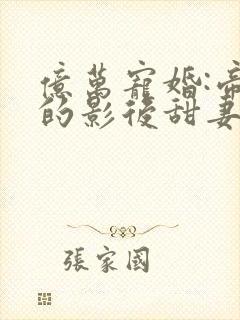 億萬寵婚:帝
的影後甜妻
張家國